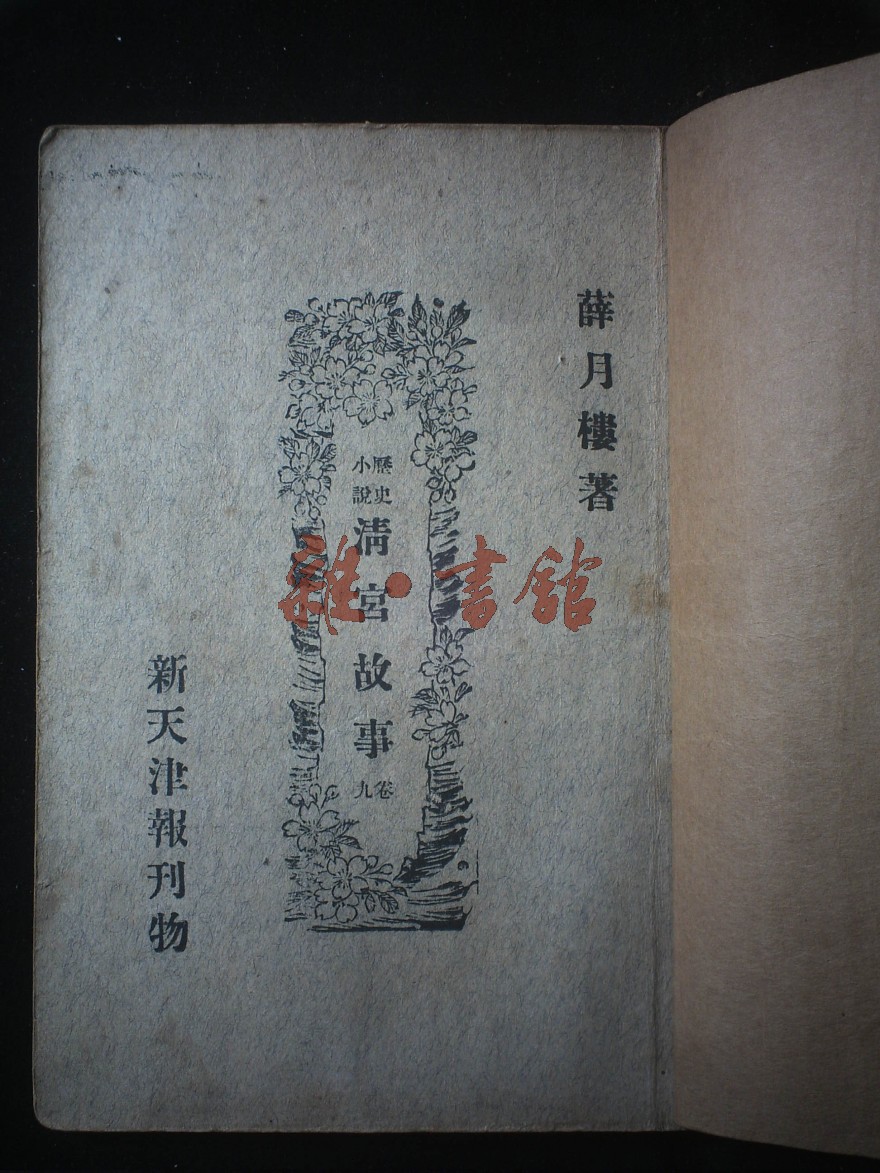 薛月樓著
歷史
小說
清宮故事
卷
九
新天津報刊物
雜·書館